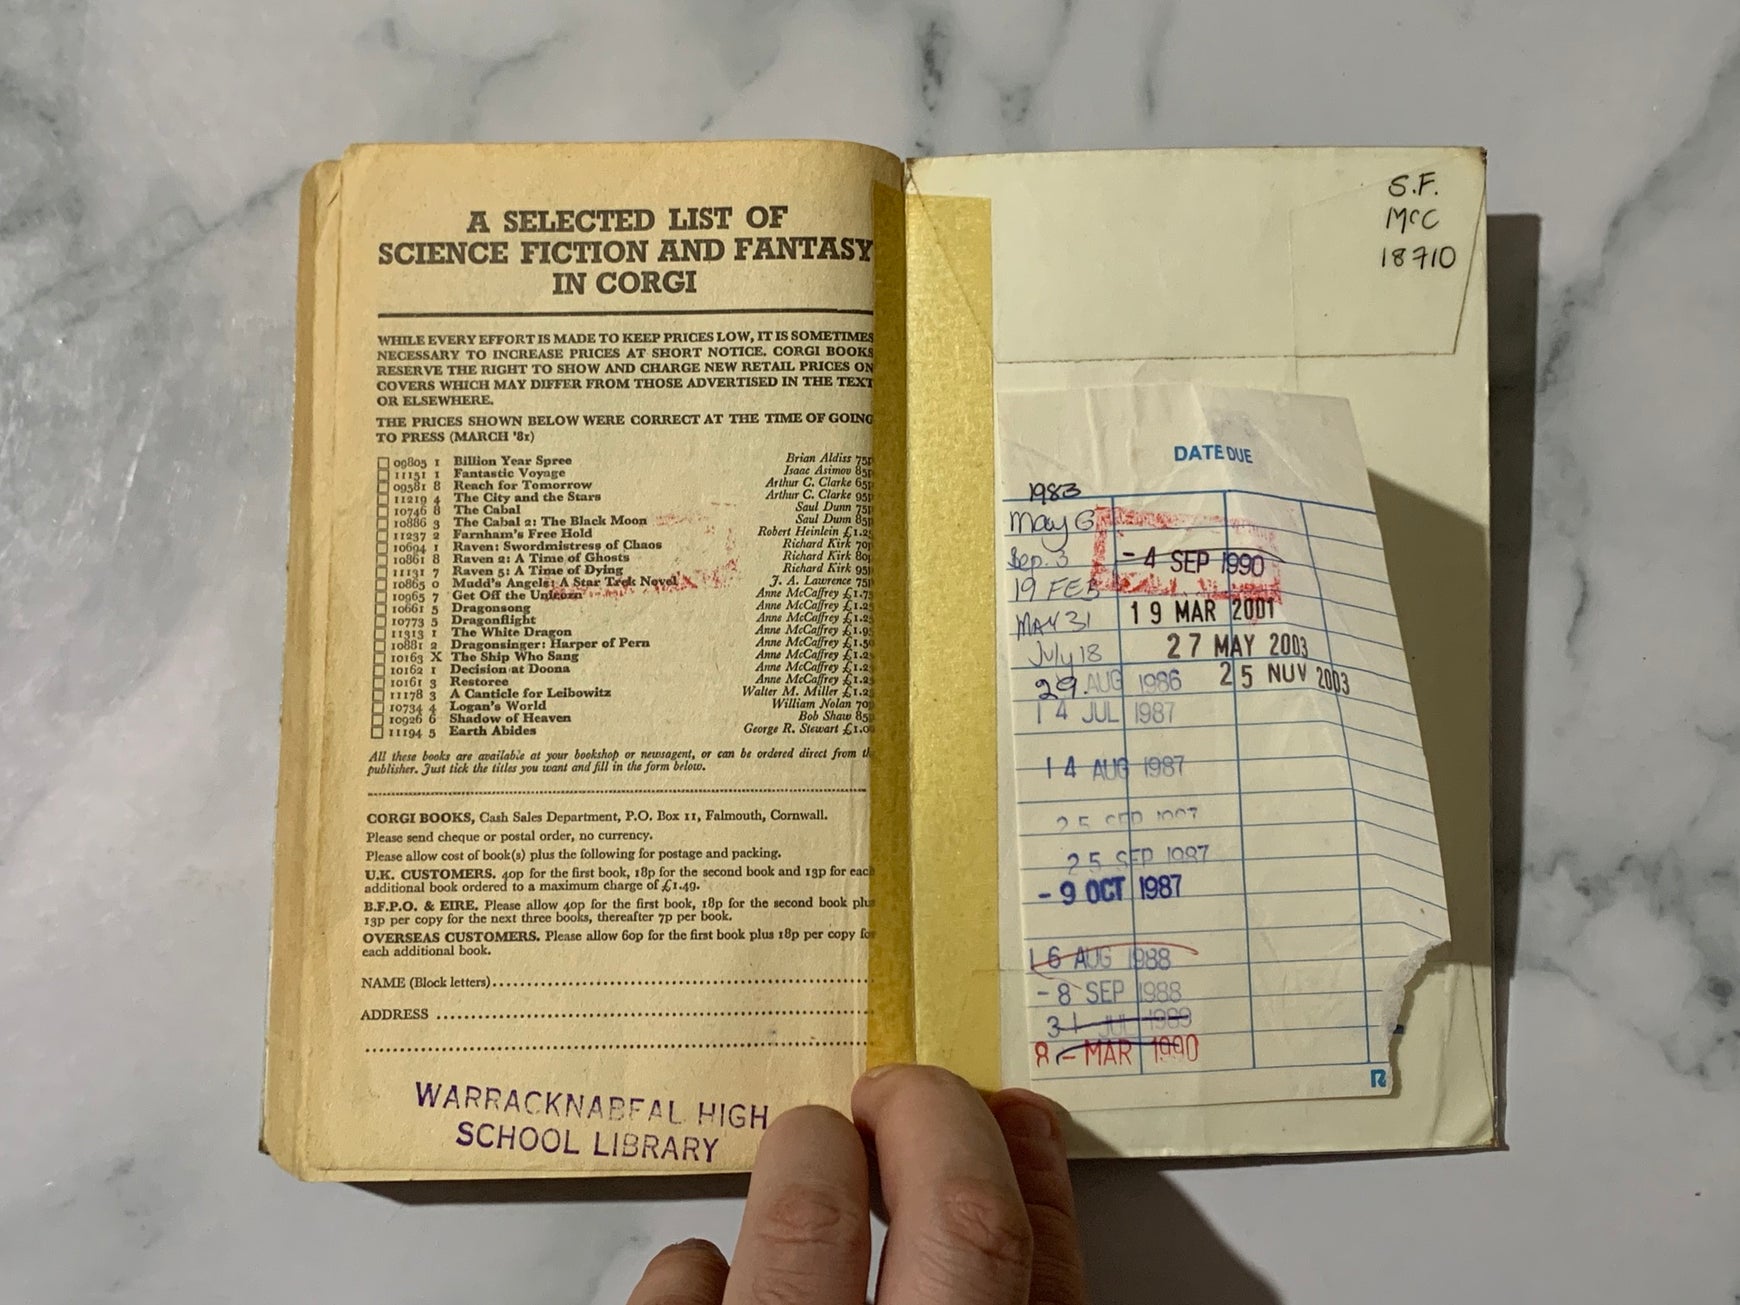 A SELECTED LIST OF
SCIENCE FICTION AND FANTASY
IN CORGI
WHILE EVERY EFFORT IS MADE TO KEEP PRICES LOW, IT IS SOMETIMES
NECESSARY TO INCREASE PRICES AT SHORT NOTICE. CORGI BOOKS
RESERVE THE RIGHT TO SHOW AND CHARGE NEW RETAIL PRICES ON
COVERS WHICH MAY DIFFER FROM THOSE ADVERTISED IN THE TEXT
OR ELSEWHERE.
THE PRICES SHOWN BELOW WERE CORRECT AT THE TIME OF GOING
TO PRESS (MARCH '81)
09805 1 Billion Year Spree Brian Aldiss 75p
11151 1 Fantastic Voyage Isaac Asimov 85p
09581 8 Reach for Tomorrow Arthur C. Clarke 65p
11219 4 The City and the Stars Arthur C. Clarke 95p
10746 8 The Cabal Saul Dunn 75p
10886 3 The Cabal 2: The Black Moon Saul Dunn 85p
11237 2 Farnham's Free Hold Robert Heinlein
10694 1 Raven: Swordmistress of Chaos Richard Kirk 70p
10861 8 Raven 2: A Time of Ghosts Richard Kirk 80p
11131 7 Raven 5: A Time of Dying Richard Kirk 95p
10865 0 Mudd's Angels: A Star Trek Novel J. A. Lawrence 75p
10965 7 Get Off the Unicorn Anne McCaffrey
10661 5 Dragonsong Anne McCaffrey
10773 5 Dragonflight Anne McCaffrey
11313 1 The White Dragon Anne McCaffrey
10881 2 Dragonsinger: Harper of Pern Anne McCaffrey
10163 X The Ship Who Sang Anne McCaffrey
10162 1 Decision at Doona Anne McCaffrey
10161 3 Restoree Anne McCaffrey
11178 3 A Canticle for Leibowitz Walter M. Miller
10734 4 Logan's World William Nolan 70p
10926 6 Shadow of Heaven Bob Shaw 85p
11194 5 Earth Abides George R. Stewart
All these books are available at your bookshop or newsagent, or can be ordered direct from the
publisher. Just tick the titles you want and fill in the form below.
CORGI BOOKS, Cash Sales Department, P.O. Box 11, Falmouth, Cornwall.
Please send cheque or postal order, no currency.
Please allow cost of book(s) plus the following for postage and packing.
U.K. CUSTOMERS. 40p for the first book, 18p for the second book and 13p for each
additional book ordered to a maximum charge of £1.49.
B.F.P.O. & EIRE. Please allow 40p for the first book, 18p for the second book plus
13p per copy for the next three books, thereafter 7p per book.
OVERSEAS CUSTOMERS. Please allow 60p for the first book plus 18p per copy for
each additional book.
NAME (Block letters)
ADDRESS
WARRACKNABEAL HIGH
SCHOOL LIBRARY
S.F.
McC
18710
DATE DUE
1983
May 6
Sep. 3
-4 SEP 1990
19 FEB
19 MAR 2001
MAY 31
27 MAY 2003
July 18
29. AUG 1986
25 NOV 2003
14 JUL 1987
14 AUG 1987
25 SEP 1987
25 SEP 1987
-9 OCT 1987
16 AUG 1988
-8 SEP 1988
31 JUL 1989
8 - MAR 1990